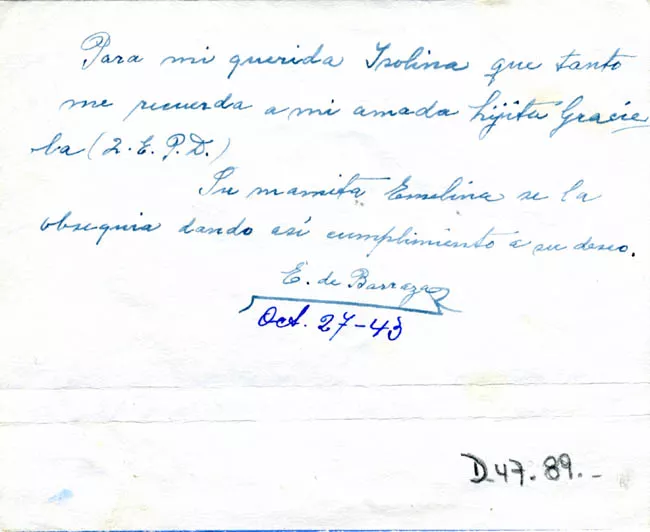 Para mi querida Isolina que tanto
me recuerda a mi amada hijita Gracie
la (Q.E.P.D.)
Su mamita Emelina se la
obsequia dando así cumplimiento a su deseo.
E. de Barraza
Oct. 27-43
D47.89.-